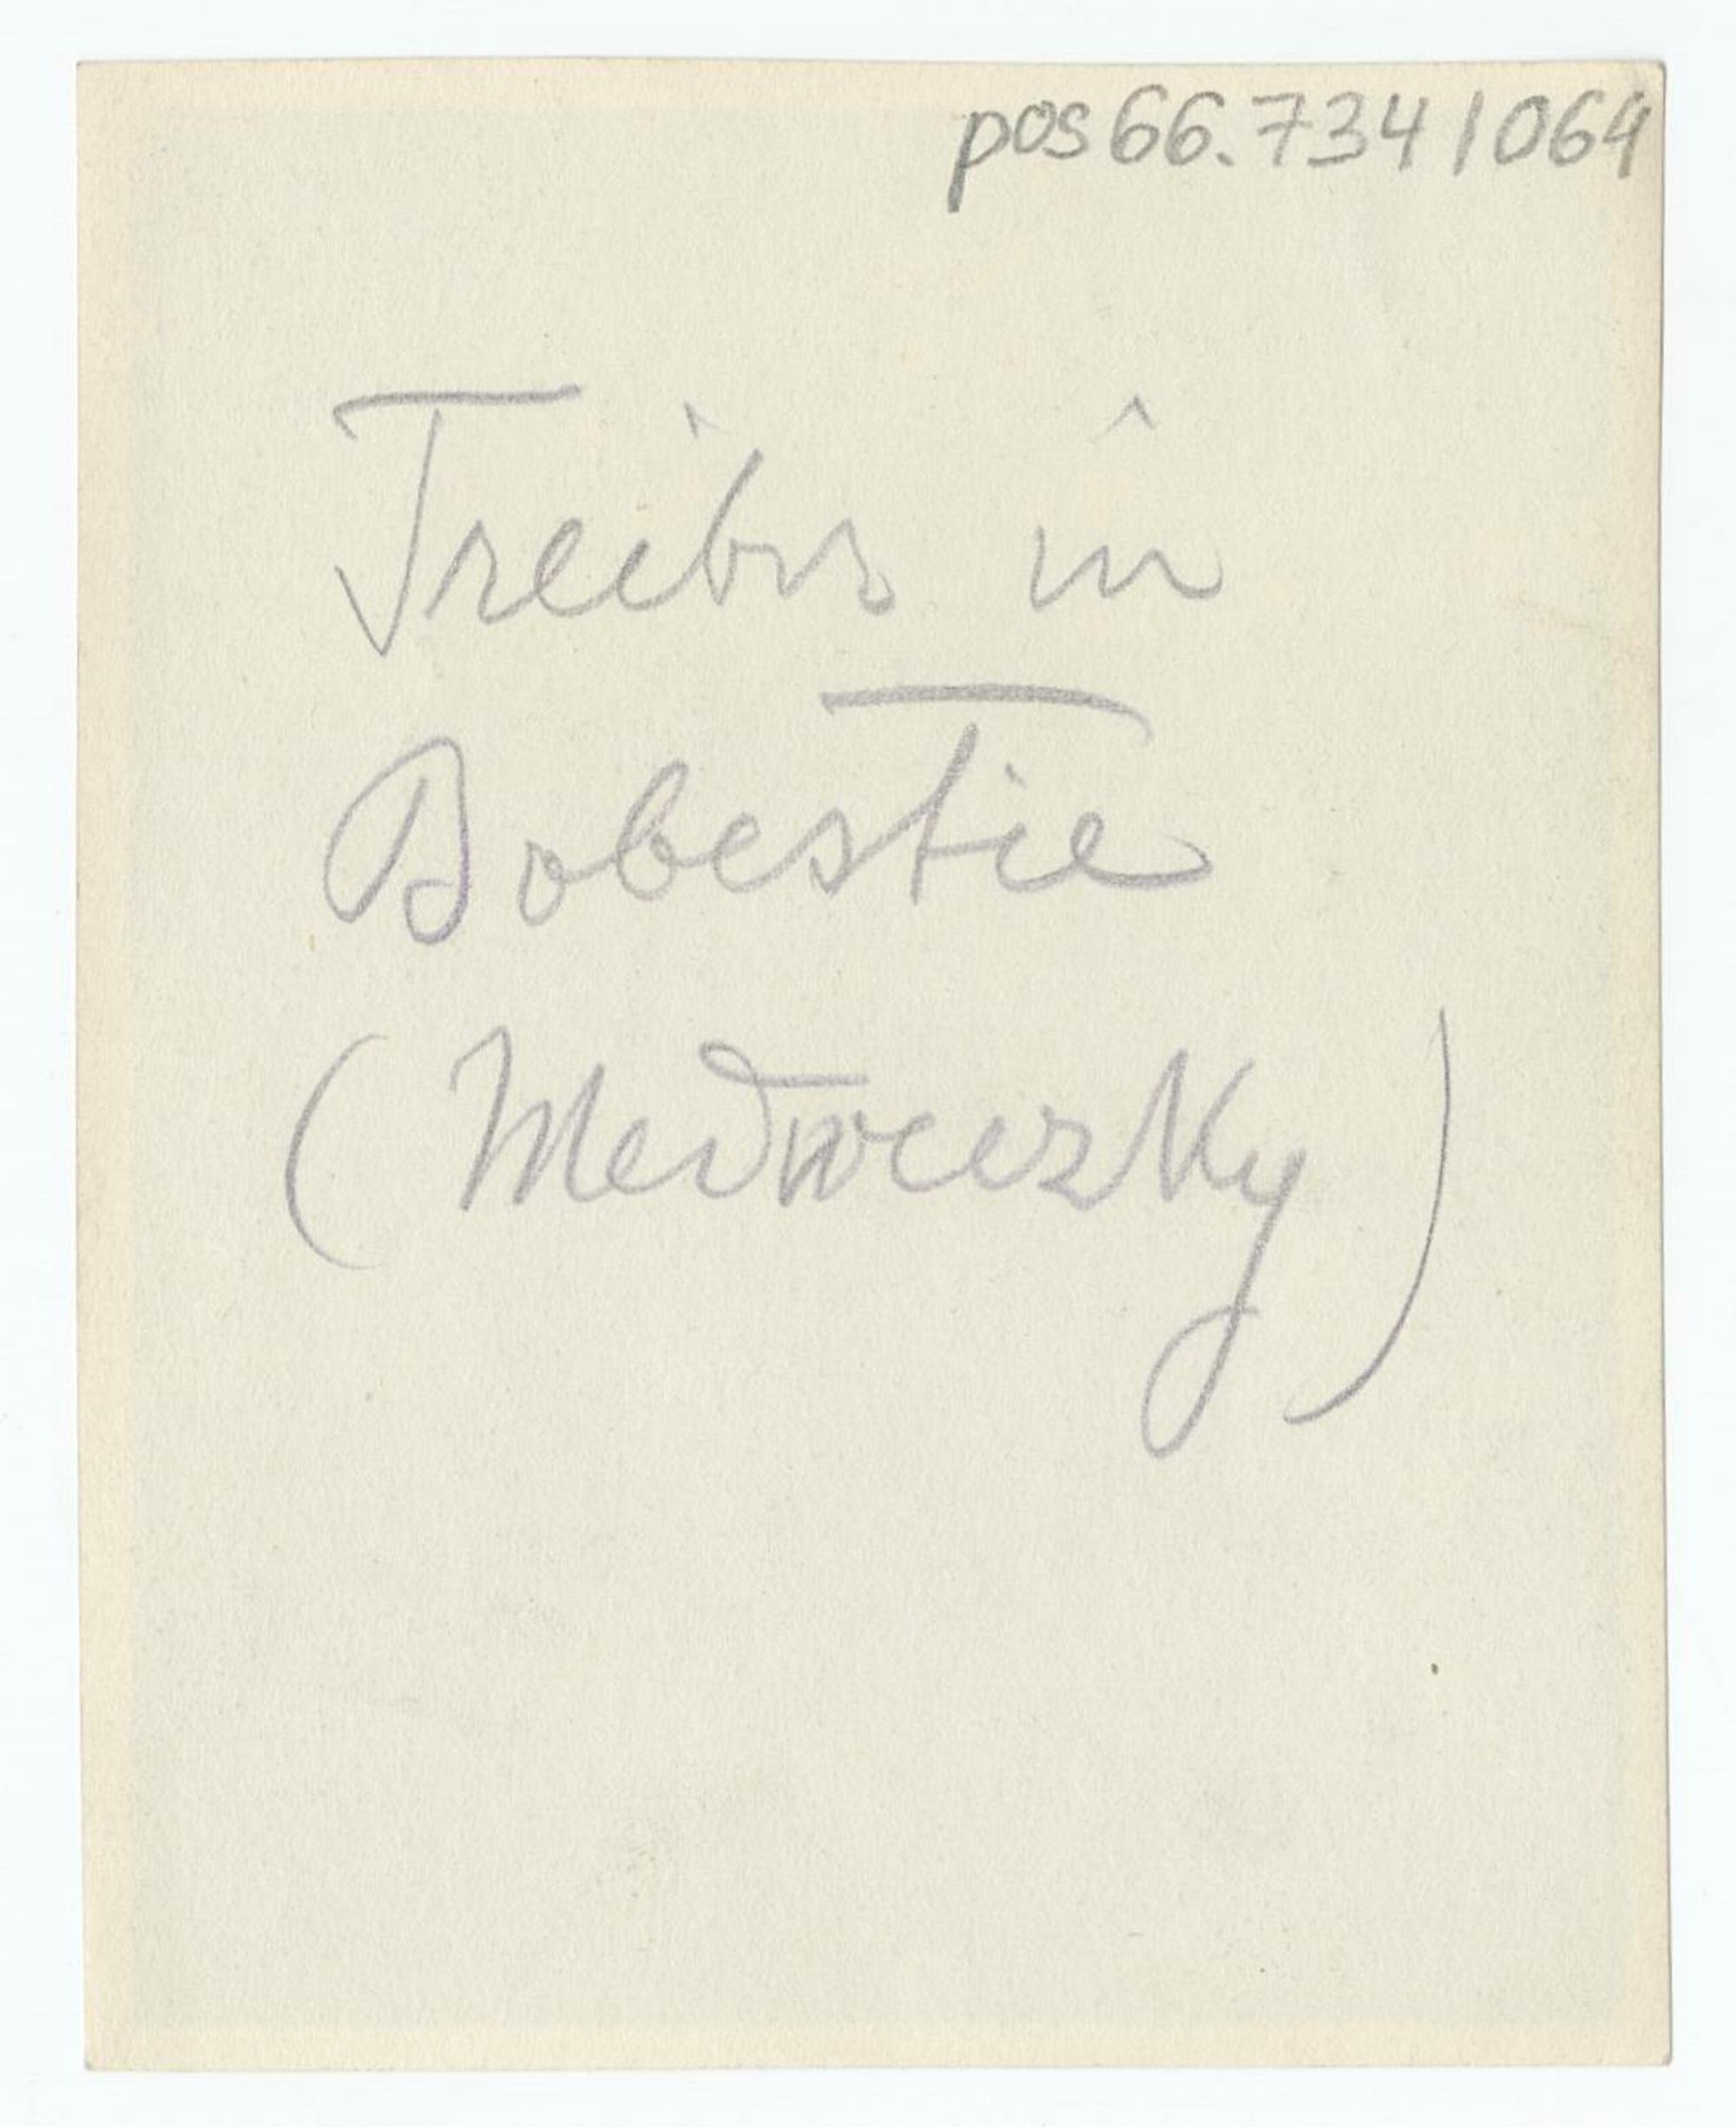 pos 66.734/064
Treibis in
Bobestie
(Medweczky)